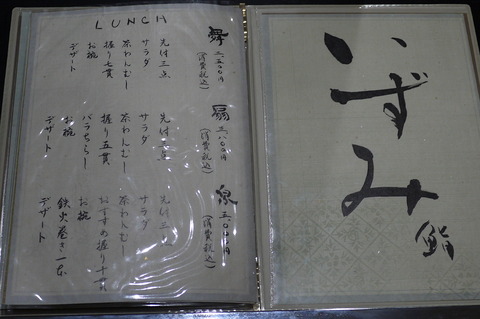 いずみ
鮨
LUNCH
舞 二、五〇〇円
(消費税込)
先付三点
サラダ
茶わんむし
握り七貫
お椀
デザート
扇 二、八〇〇円
(消費税込)
先付三点
サラダ
茶わんむし
握り五貫
バラちらし
お椀
デザート
泉
(消費税込)
先付三点
サラダ
茶わんむし
おすすめ握り十貫
お椀
鉄火巻き一本
デザート